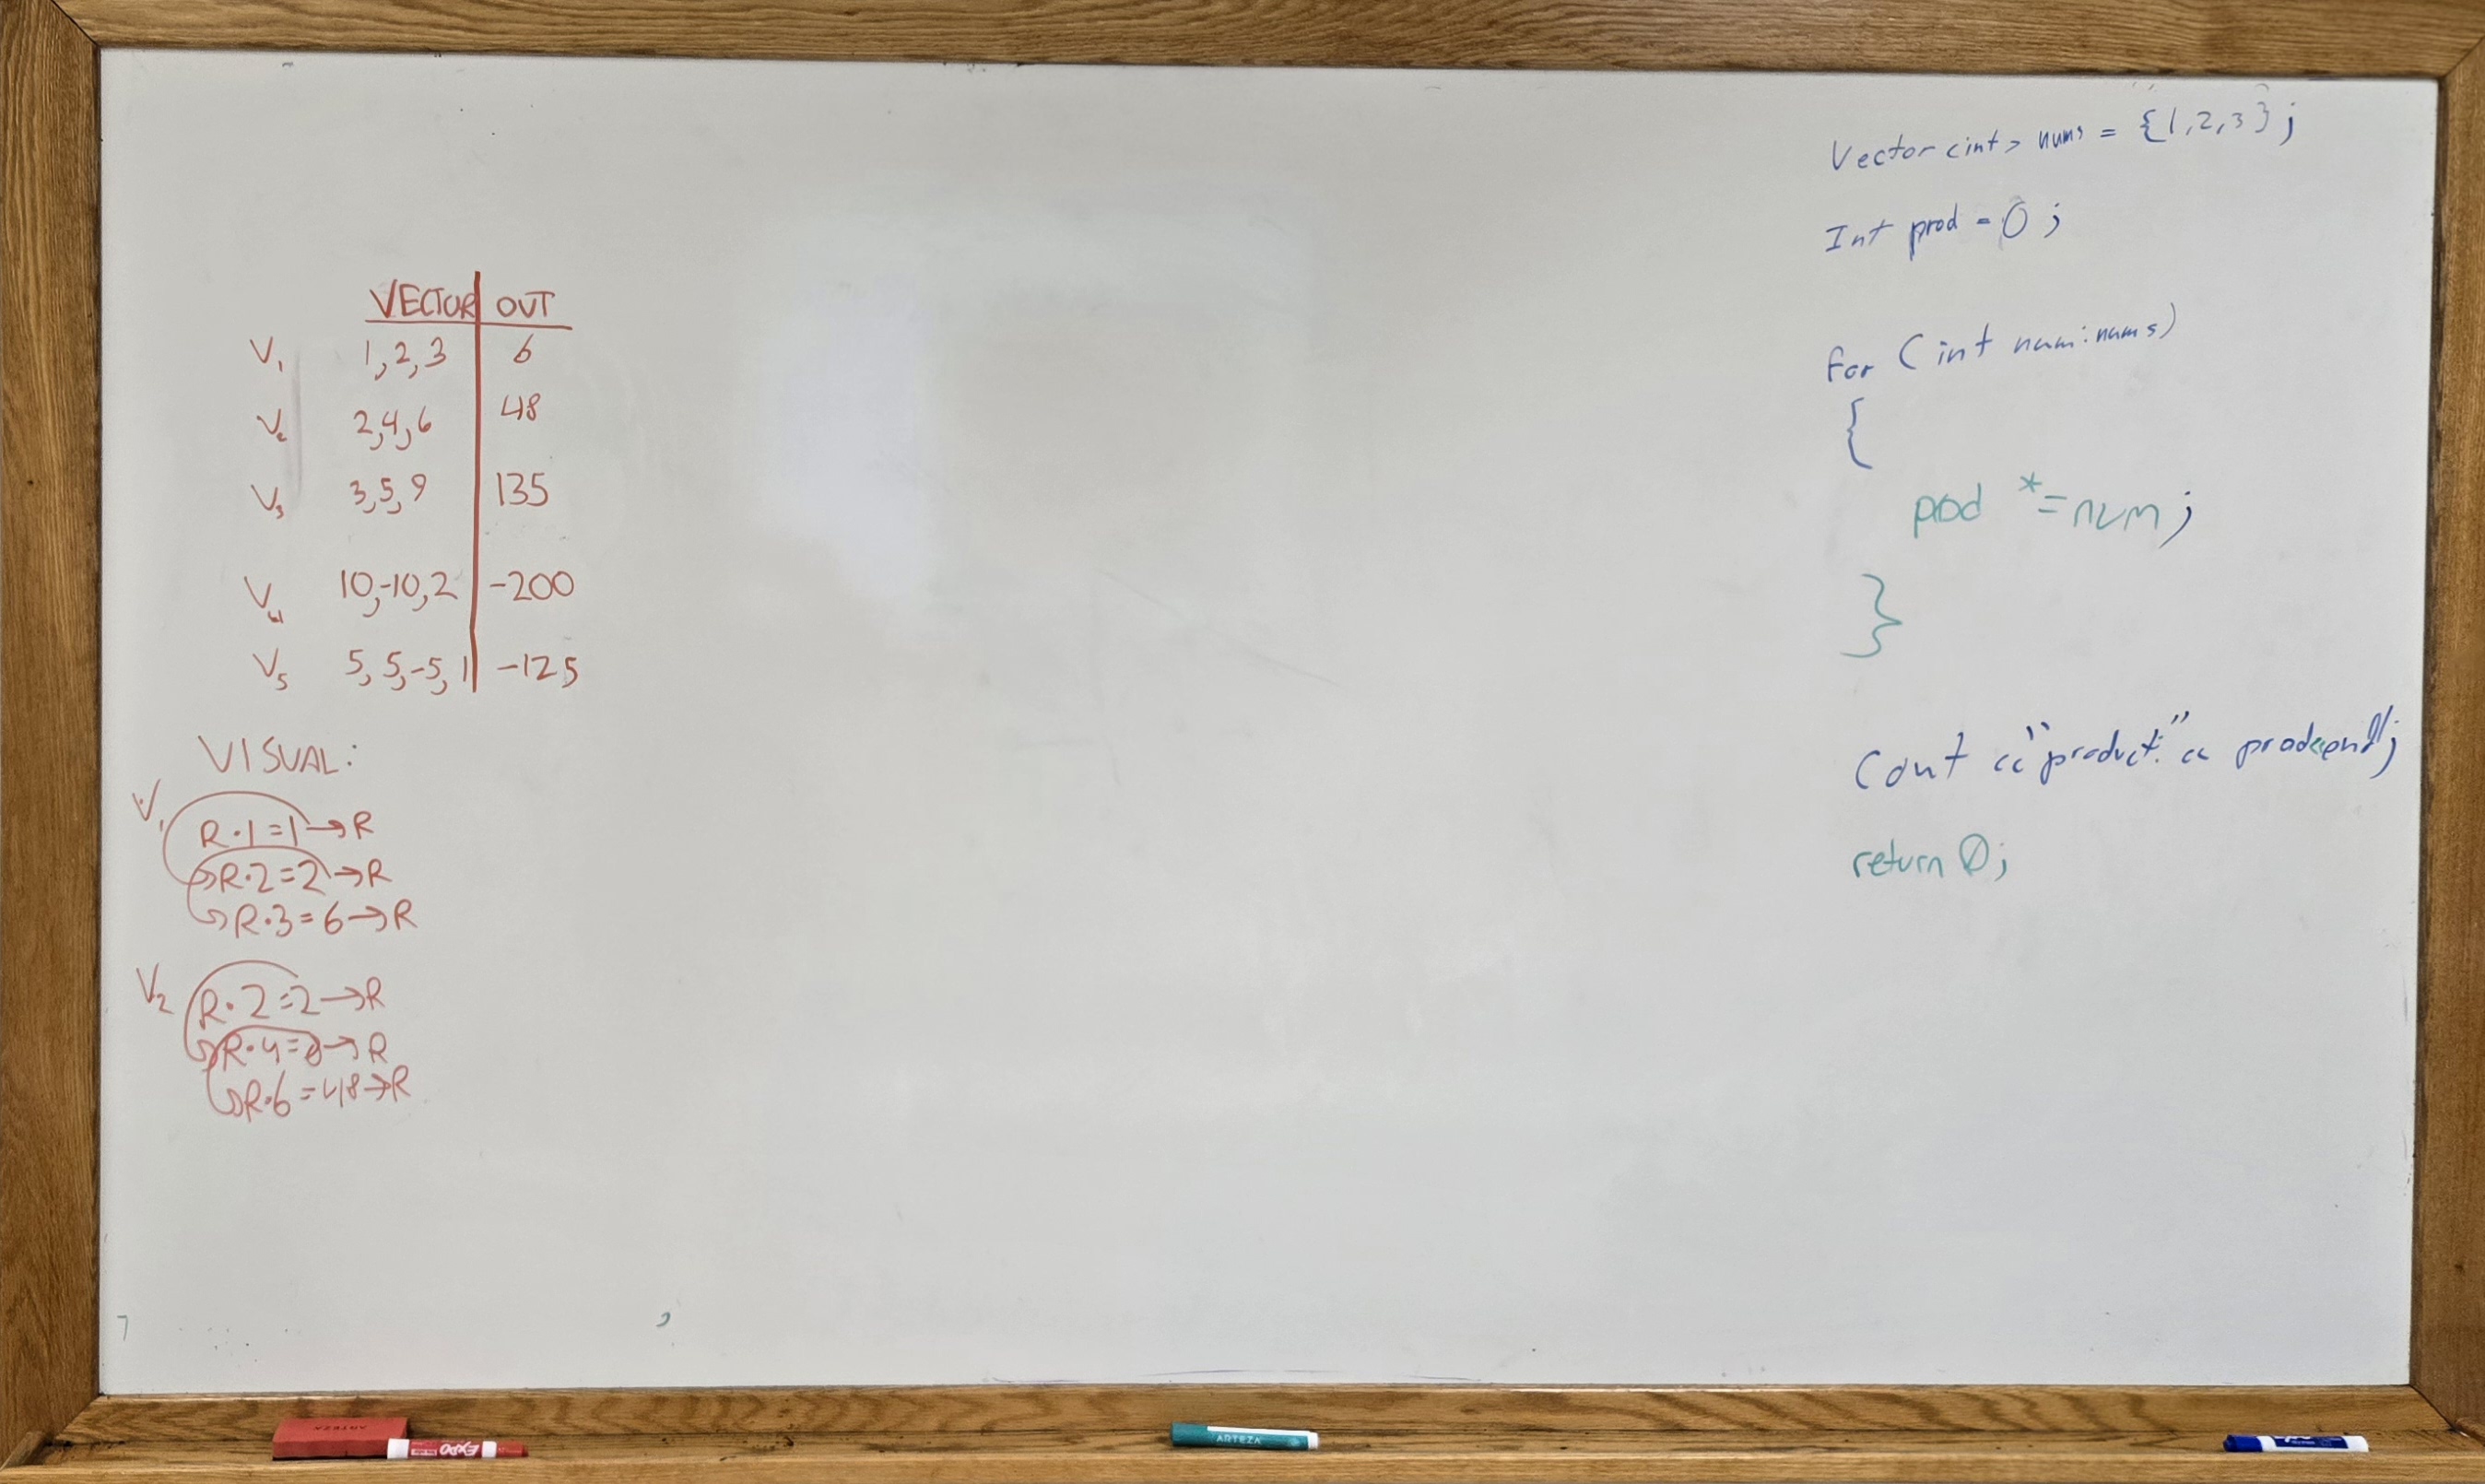 VECTOR OUT
V1 1,2,3 6
V2 2,4,6 48
V3 3,5,9 135
V4 10,-10,2 -200
V5 5,5,-5,1 -125
VISUAL:
V1
R·1=1→R
R·2=2→R
R·3=6→R
V2
R·2=2→R
R·4=8→R
R·6=48→R
Vector <int> nums = {1,2,3};
Int prod = 0;
for (int num:nums)
{
prod *=num;
}
Cout << "product:" << prod<<endl;
return 0;
ARTEZA
EXPO
ARTEZA